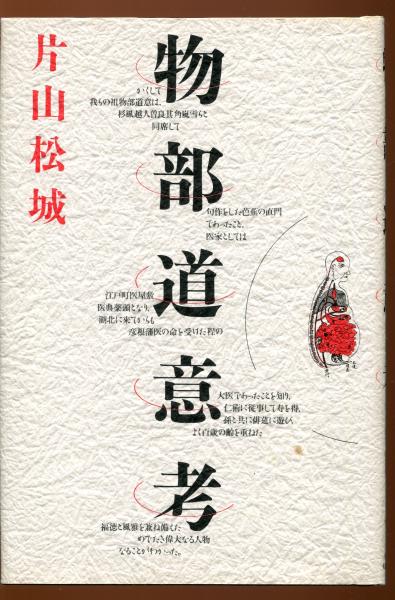 片山松城
物部道意考
かくして
我らの祖物部道意は、
杉風越人曽良其角嵐雪らと
同席して
句作をした芭蕉の直門
であったこと、
医家としては
江戸町医屋敷
医典薬頭となり、
湖北に来ていらも
彦根藩医の命を受けた程の
大医であったことを知り、
仁術に従事して寿を得、
孫と共に俳莚に遊び、
よく百歳の齢を重ねた
福徳と風雅を兼ね備えた
めでたき偉大なる人物
なることがわかった。